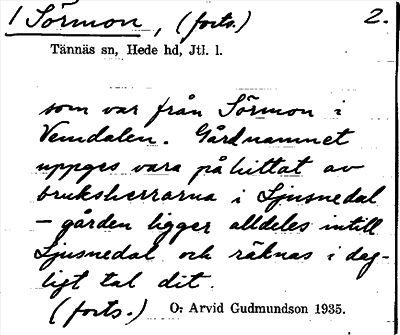 1 Sörmon, (forts.) 2.
Tännäs sn, Hede hd, Jtl. l.
som var från Sörmon i
Vemdalen. Gårdnamnet
uppges vara påhittat av
bruksherrarna i Ljusnedal
– gården ligger alldeles intill
Ljusnedal och räknas i dag-
ligt tal dit.
(forts.) O: Arvid Gudmundson 1935.